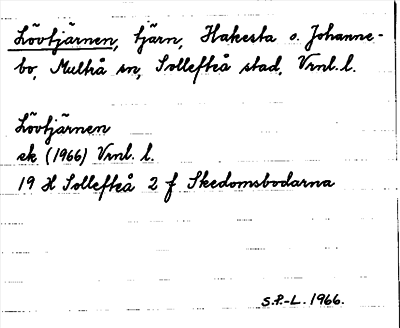 Lövtjärnen, tjärn, Hakesta o. Johanne-
bo, Multrå sn, Sollefteå stad, Vrnl. l.
Lövtjärnen
ek (1966) Vrnl. l.
19 H Sollefteå 2 f Skedomsbodarna
S.P.-L. 1966.